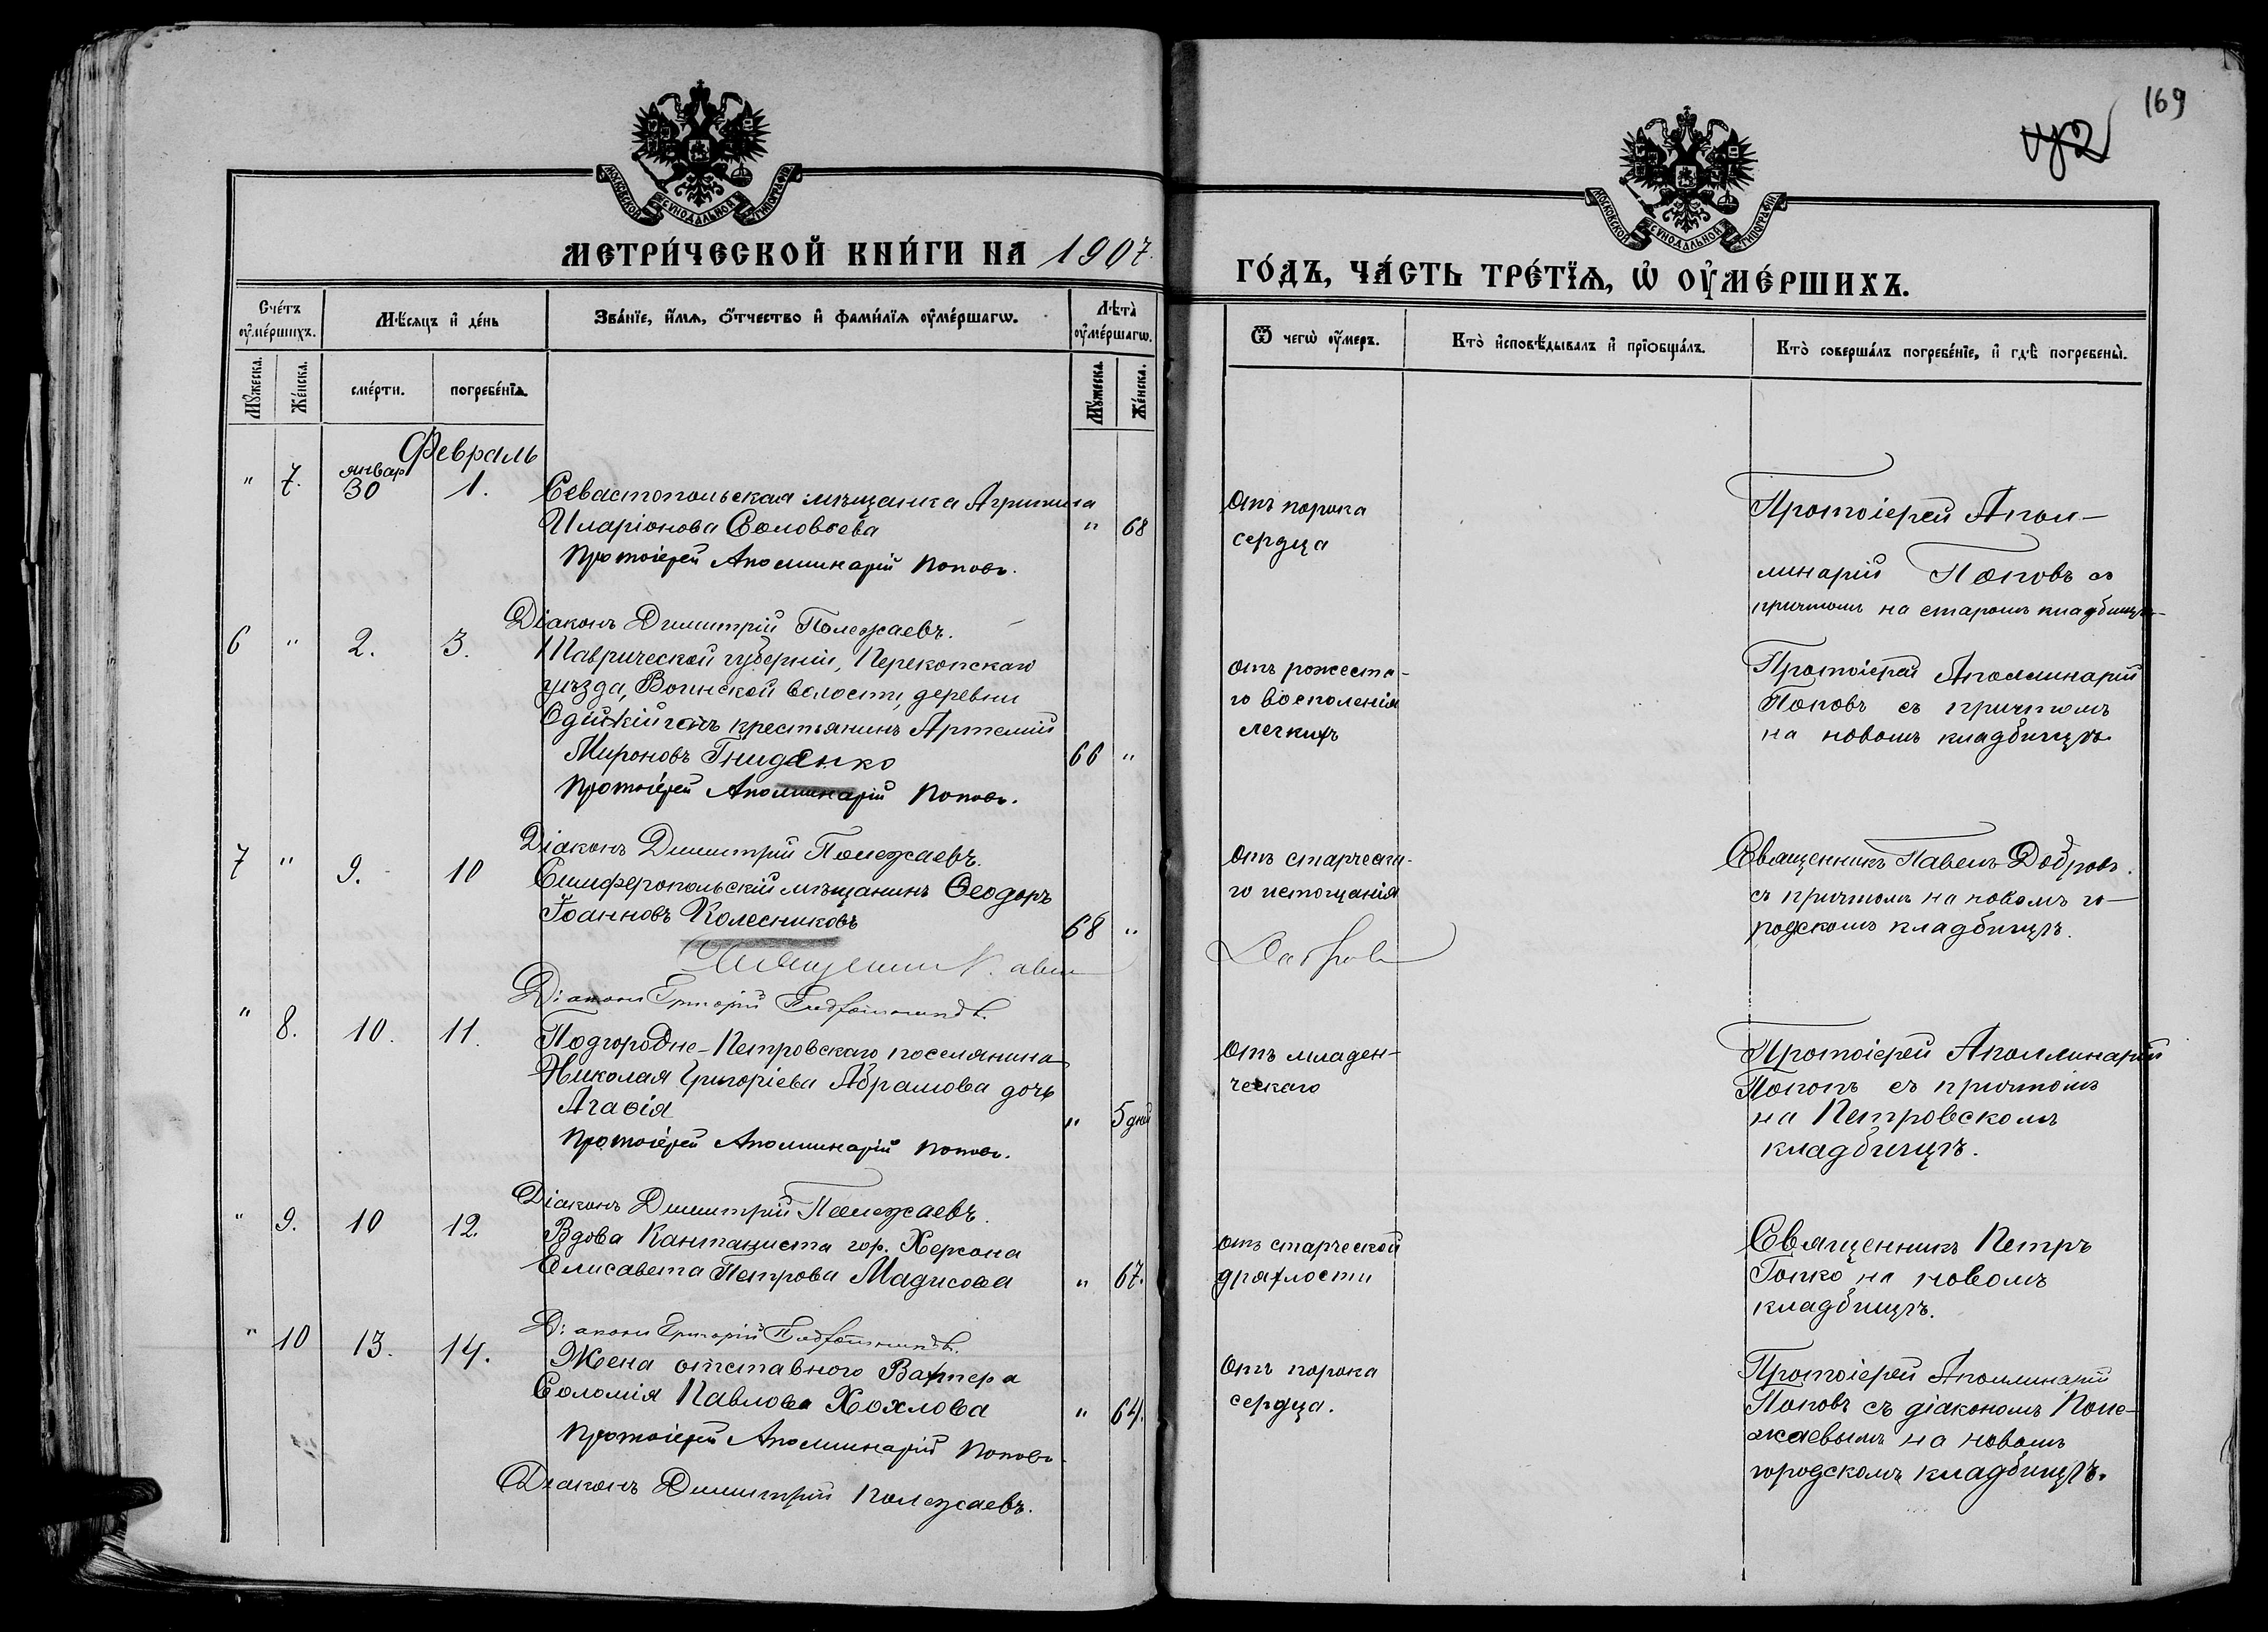 169
МОСКОВСКОЙ СУНОДАЛЬНОЙ ТИПОГРАФІИ
МЕТРИ́ЧЕСКОЙ КНИ́ГИ НА 1907.
МОСКОВСКОЙ СУНОДАЛЬНОЙ ТИПОГРАФІИ
ГО́ДЪ, ЧА́СТЬ ТРЕ́ТЇѦ, Ѡ҆ ОУ҆МЕ́РШИХЪ.
Сче́тъ оу҆ме́ршихъ.
Мѣ́сяцъ и҆ де́нь
Зва́нїе, и҆́мѧ, ѻ҆́тчество и҆ фами́лїѧ оу҆ме́ршагѡ.
Лѣ̑та̀ оу҆ме́ршагѡ.
Ѿ чегѡ̀ оу҆́меръ.
Кто̀ и҆сповѣ́дывалъ и҆ прїѡбща́лъ.
Кто̀ соверша́лъ погребе́нїе, и҆ гдѣ̀ погребены̀.
Мꙋ́жеска.
Же́нска.
сме́рти.
погребе́нїѧ.
Мꙋ́жеска.
Же́нска.
Февраль
" 7. январ 30 1.
Севастопольская мѣщанка Агрипина
Иларіонова Соловьева " 68
Протоіерей Аполлинарій Поповъ.
Діаконъ Димитрій Полежаевъ.
Отъ порока
сердца
Протоіерей Апол-
линарій Поповъ съ
причтомъ на старомъ кладбищѣ
6 " 2. 3.
Таврической губерніи, Перекопскаго
уѣзда, Воинской волости, деревни
крестьянинъ Артемій
Мироновъ Гниденко 66 "
Протоіерей Аполлинарій Поповъ.
Діаконъ Димитрій Полежаевъ.
отъ
го воспаленія
легкихъ
Протоіерей Аполлинарій
Поповъ съ причтомъ
на новомъ кладбищѣ.
7 " 9. 10
Симферопольскій мѣщанинъ Ѳеодоръ
Іоанновъ Колесниковъ 68 "
Священник Павел Добров
Діаконъ Григорій
Отъ старческа-
го истощанія
Священникъ Павелъ Добровъ.
съ причтомъ на новомъ го-
родскомъ кладбищѣ.
" 8. 10. 11.
Подгородне-Петровскаго поселянина
Николая Григоріева Абрамова дочь
Агаѳія " 5 дней
Протоіерей Аполлинарій Поповъ.
Діаконъ Димитрій Полежаевъ.
Отъ младен-
ческаго
Протоіерей Аполлинарій
Поповъ съ причтомъ
на Петровскомъ
кладбищѣ.
" 9. 10 12.
Вдова Кантониста гор. Херсона
Елисавета Петрова Мадисова " 67.
Діаконъ Григорій
отъ старческой
дряхлости
Священникъ Петръ
Гопко на новомъ
кладбищѣ.
" 10 13. 14.
Жена отставного Вахтера
Соломія Павлова Хохлова " 64.
Протоіерей Аполлинарій Поповъ
Діаконъ Димитрій Полежаевъ.
Отъ порока
сердца.
Протоіерей Аполлинарій
Поповъ съ діакономъ Поле-
жаевымъ на новомъ
городскомъ кладбищѣ.